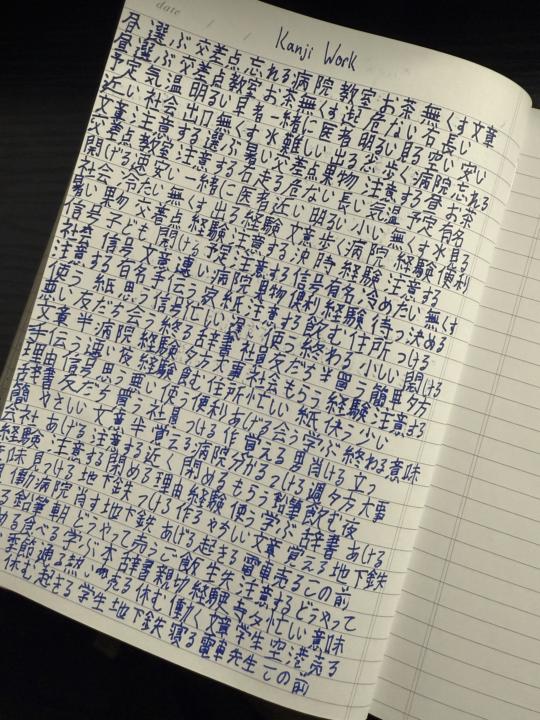 date
Kanji Work
昼 選ぶ 交差点 忘れる 病院 教室 お茶 無くす 文章
昼 選ぶ 交差点 教室 お茶 無くす 起 危ない 右 長い
予定 気温 明るい 有名 一緒に 医者 明るい 見る 安い
近い 社会 出口 無くす 水 難しい 出る 歩く 病院 忘れる
文章 注意する 選ぶ 暑い 交差点 果物 注意する 昼 お茶
交差点 教室 注意する 右 走る 危ない 長い 気温 予定 有名
開ける 悪い 安い 一緒に 医者 近い 明るい 小い 無くす 水 見る
社会 冷たい 無くす 出る 経験 文章 歩く 病院 経験 便利
暑い 果物 交差点 経験 注意する 決 待 経験 注意する
信号 子ども 開ける 予定 注意する 信号 有名 冷めたい 無くす
社会 信号 文章 速い 病院 果物 便利 経験 待つ 決める
注意する 有名 手伝う 紙 注意する 飲む 住所 つける
使う 紙 思う 信号 忙しい 使う 終わる 小い 開ける
悪い 友だち 会う 終る 辞書 社員 友だち 買う 簡 夕方
文章 半 病院 経験 夕方 大事 社会 もらう 経験 注意する
手伝う 速い 夜 経験 飲む 住所 忙しい 紙 使う 少い
理由 信号 思う 悪い 使う 便利 あげる 会う 学ぶ 終わる 意味
辞書 友だち 買う 社員 つける 作 覚える 男 負ける 立つ
簡 やさしい 文章 半 覚える 病院 分かる つける 週 夕方 大事
会社 あげる 注意する 近く 閉める もらう 鉛筆 飲む 夜
経験 注意する 閉める 理由 経験 使う 学ぶ 辞書 あげる
意味 見つける 地下鉄 つける 作る やさしい 文章 覚える 地下鉄
働 病院 消す 地下鉄 あげる 起きる 電車 売る この前
る 鉛筆 朝 どうやって 売る ご飯 先生 注意する どうやって
める 食べる 学ぶ 本 辞書 親切 経験 夕 忙しい 意味
季節 通る 熱い 売る 休む 働く 文章 学生 空港 売る
休む 起きる 学生 地下鉄 寝る 電車 先生 この前